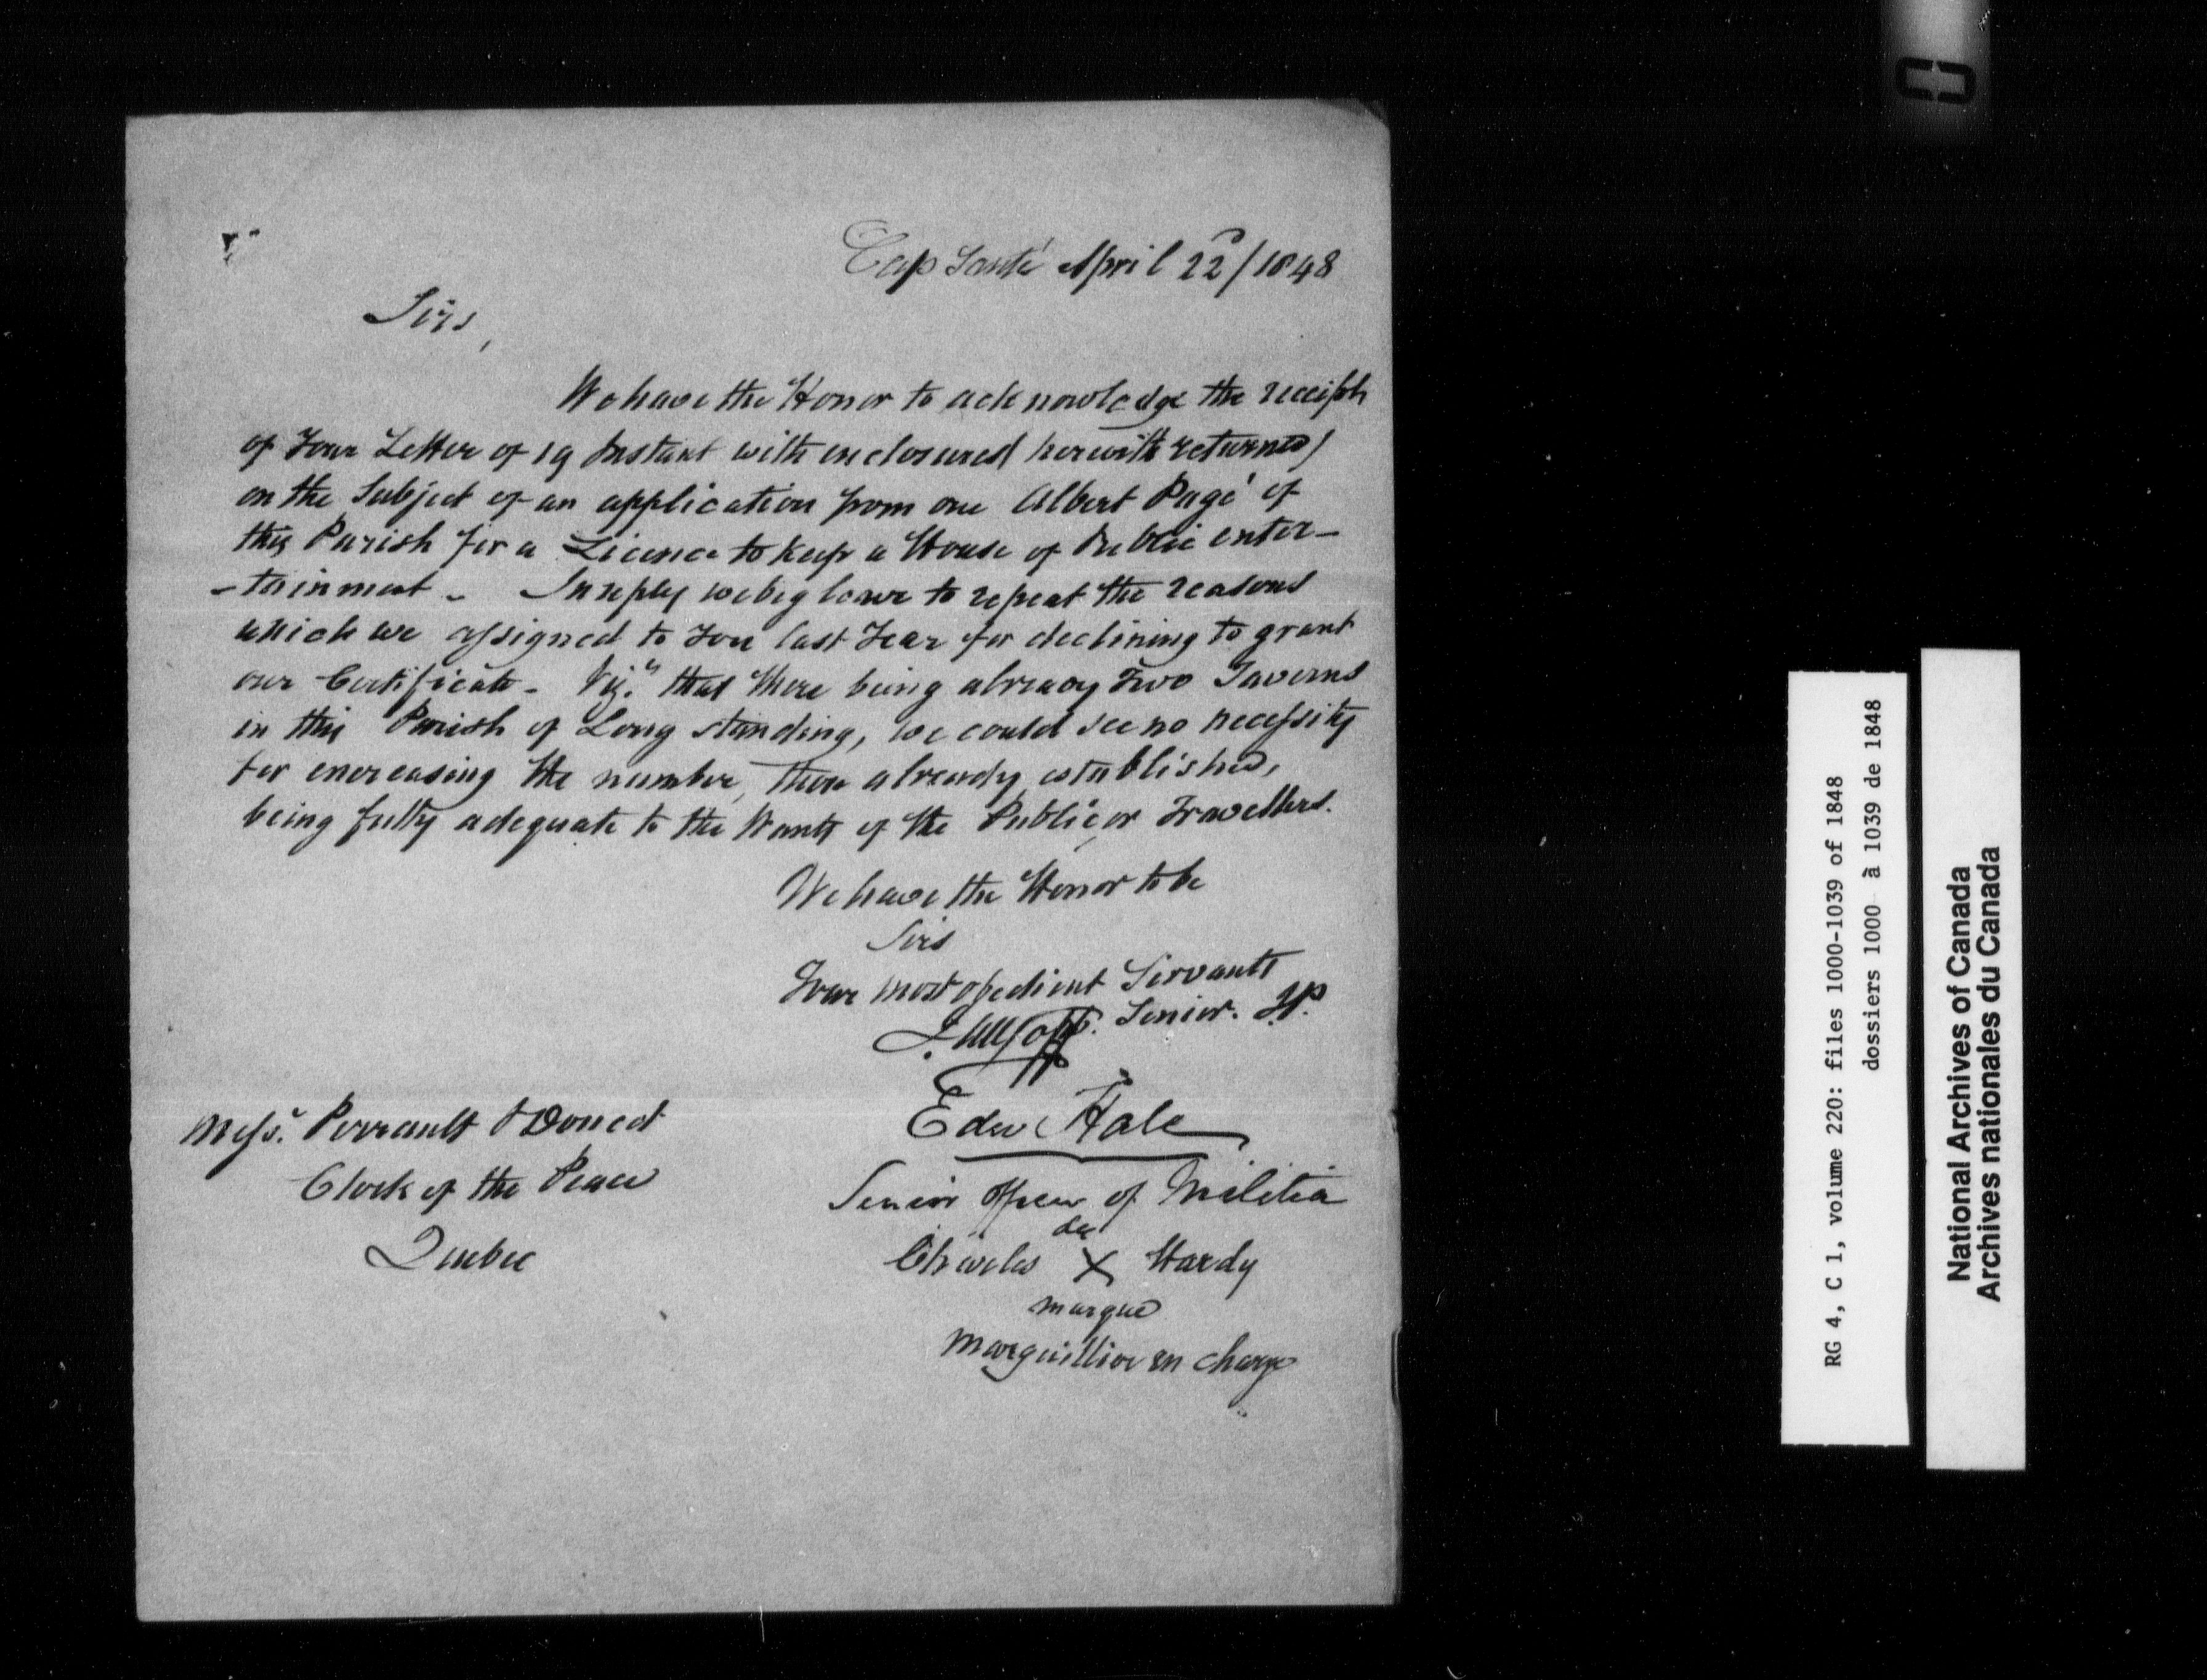 Cap Santé April 22d/1848
Sirs,
We have the Honor to acknowledge the receipt
of Your Letter of 19 Instant with enclosures (herewith returned)
on the Subject of an application from one Albert Pagé of
this Parish for a Licence to keep a House of Public enter-
-tainment - In reply we beg leave to repeat the reasons
which we assigned to You last Year for declining to grant
our Certificate - Viz. that there being already Two Taverns
in this Parish of Long standing, we could see no necessity
for encreasing the number, those already established,
being fully adequate to the Wants of the Public, or Travellers.
We have the Honor to be
Sirs
Your most obedient Servants
Senior. J.P.
Edw Hale
Senior Officer of Militia
Charles sa X Hardy
marque
Marguillier en charge
Messrs. Perrault & Doucet
Clerk of the Peace
Quebec
RG 4, C 1, volume 220: files 1000-1039 of 1848
dossiers 1000 à 1039 de 1848
National Archives of Canada
Archives nationales du Canada